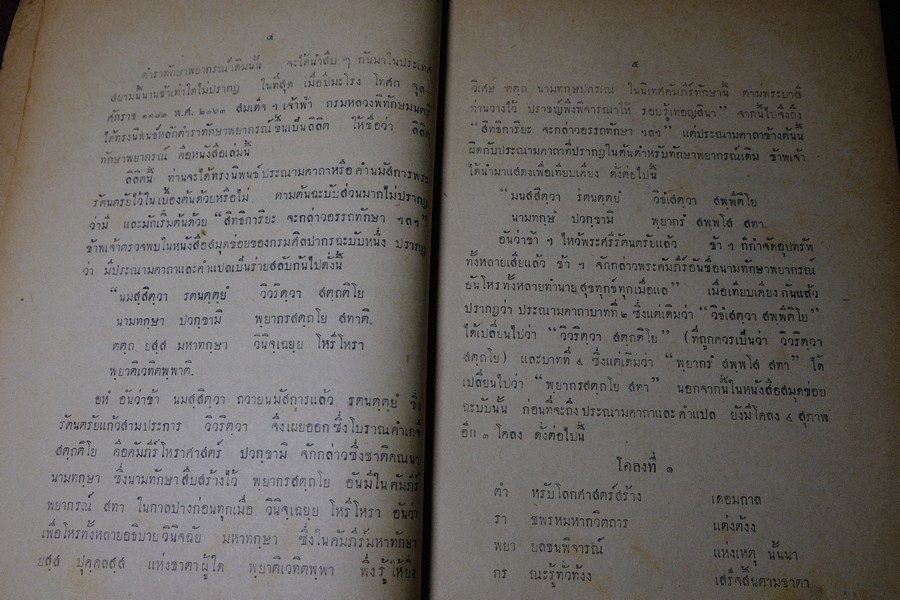 ๔
ตำราทักษาพยากรณ์เดิมนั้น จะได้นำสืบ ๆ กันมาในประเทศ
สยามนี้นานช้าเท่าใดไม่ปรากฏ ในที่สุด เมื่อปีมะโรง โทศก จุล-
ศักราช ๑๑๘๒ พ.ศ. ๒๓๖๓ สมเด็จ ฯ เจ้าฟ้า กรมหลวงพิทักษมนตรี
ได้ทรงนิพนธ์หลักตำราทักษาพยากรณ์ ขึ้นเป็นลิลิต ให้ชื่อว่า ลิลิต
ทักษาพยากรณ์ คือหนังสือเล่มนี้
ลิลิตนี้ ท่านจะได้ทรงนิพนธ์ ประณามคาถาหรือ คำนมัสการพระ
รัตนตรัยไว้ใน เบื้องต้นด้วยหรือไม่ ตามต้นฉะบับส่วนมากไม่ปรากฏ
ว่ามี และมักเริ่มต้นด้วย “สิทธิการิยะ จะกล่าวอรรถทักษา ฯลฯ”
ข้าพเจ้าตรวจพบในหนังสือสมุดข่อยของกรมศิลปากรฉะบับหนึ่ง ปรากฏ
ว่า มีประณามคาถาและคำแปลเป็นร่ายสลับกันไปดั่งนี้
“นมสฺสิตฺวา รตนตฺตยํ วิวริตฺวา สตฺถติโย
นามทกฺษา ปวกฺขามิ พฺยากรสตฺถโย สทาติ.
ตตฺถ ยสฺส มหาทกฺษา วินิจฺเฉยฺย โหรํโหรา
พฺยาติเวทิตพฺพาติ.
อหํ อันว่าข้า นมสฺสิตฺวา ถวายนมัสการแล้ว รตนตฺตยํ ซึ่ง
รัตนตรัยแก้วสามประการ วิวริตฺวา จึงเผยออก ซึ่งโบราณคำเกจิ
สตฺถติโย คือคัมภีร์โหราศาสตร์ ปวกฺขามิ จักกล่าวซึ่งชาติคณนา
นามทกฺษา ซึ่งนามทักษาสืบสร้างไว้ พฺยากรสตฺถโย อันมีใน คัมภีร์
พยากรณ์ สทา ในกาลปางก่อนทุกเมื่อ วินิจฺเฉยฺย โหรํโหรา อันว่า
เพื่อโหรทั้งหลายอธิบายวินิจฉัย มหาทกฺษา ซึ่งในคัมภีร์มหาทักษา
ยสฺส ปุคฺคลสฺส แห่งชาตาผู้ใด พฺยาติเวทิตพฺพา พึงรู้ให้ยิ่ง
๕
วิเศษ ตตฺถ นามทกฺษปกรเณ ในนิเทศคัมภีร์ทักษานี้ ตามพระบาลี
ท่านวางไว้ ปราชญ์พึงพิจารณาให้ รอบรู้เทอญสิ้นา” จากนั้นไปจึงถึง
“สิทธิการิยะ จะกล่าวอรรถทักษา ฯลฯ” แต่ประณามคาถาข้างต้นนี้
ผิดกับประณามคาถาที่ปรากฏในต้นตำหรับทักษาพยากรณ์เดิม ข้าพเจ้า
ได้นำมาแสดงเพื่อเทียบเคียง ดั่งต่อไปนี้
“มนสฺสิตฺวา รตนตฺตยํ วิธํเสตฺวา สพฺพํติโย
นามทกฺษํ ปวกฺขามิ พฺยากรํ สพฺพโส สทา.
อันว่าข้า ฯ ไหว้พระศรีรัตนตรัยแล้ว ข้า ฯ ก็กำจัดอุปัทรัพ
ทั้งหลายเสียแล้ว ข้า ฯ จักกล่าวพระคัมภีร์อันชื่อนามทักษาพยากรณ์
อันโหรทั้งหลายทำนาย สุขทุกข์ทุกเมื่อแล” เมื่อเทียบเคียงกันแล้ว
ปรากฏว่า ประณามคาถาบาทที่ ๒ ซึ่งแต่เดิมว่า “วิธํเสตฺวา สพฺพํติโย”
ได้เปลี่ยนไปว่า “วิวริตฺวา สตฺถติโย” (ที่ถูกควรเป็นว่า วิวริตฺวา
สตฺถโย) และบาทที่ ๔ ซึ่งแต่เดิมว่า “พฺยากรํ สพฺพโส สทา” ได้
เปลี่ยนไปว่า “พฺยากรสตฺถโย สทา” นอกจากนี้ในหนังสือสมุดข่อย
ฉะบับนั้น ก่อนที่จะถึง ประณามคาถาและคำแปล ยังมีโคลง ๔ สุภาพ
อีก ๓ โคลง ดั่งต่อไปนี้
โคลงที่ ๑
ตำ หรับโลกศาสตร์สร้าง เดอมกาล
รา ชพรหมหากวิตถาร แต่งตั้งง
พยา ยลชนพิจารณ์ แห่งเหตุ นั้นนา
กร ณะรู้ทั่วทั้งง เสร็จสิ้นตามชาตา